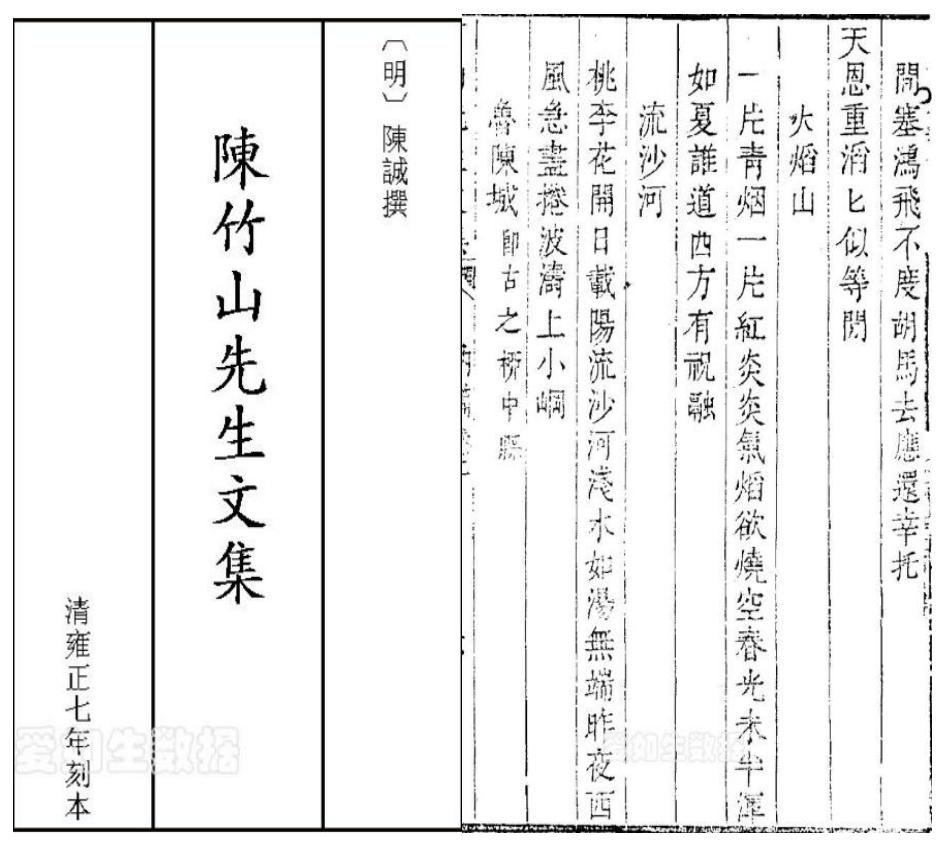 〔明〕陳誠撰
陳竹山先生文集
清雍正七年刻本
爱如生数据
間塞鴻飛不度胡馬去應還幸托
天恩重滔匕似等閒
火焰山
一片青烟一片紅炎炎氣焰欲燒空春光未半渾
如夏誰道西方有祝融
流沙河
桃李花開日載陽流沙河淺水如湯無端昨夜西
風急盡捲波濤上小崗
魯陳城即古之柳中縣
爱如生数据